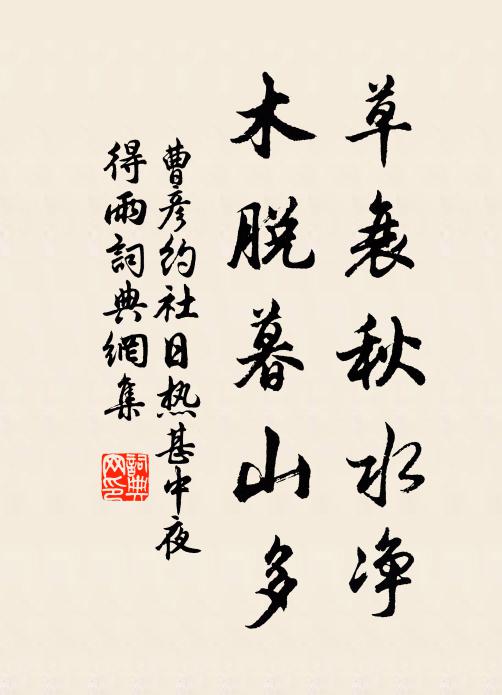 草衰秋水净
木脱暮山多
曹彦约社日热甚中夜
得雨詞典網集
詞典
网印